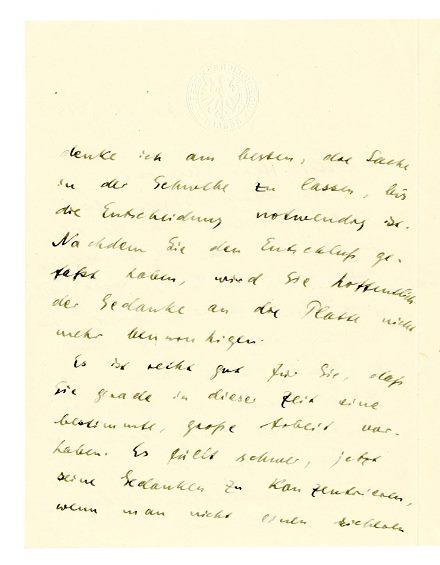 denke ich am besten, die Sache
in der Schwebe zu lassen, bis
die Entscheidung notwendig ist.
Nachdem Sie den Entschluß ge-
faßt haben, wird Sie hoffentlich
der Gedanke an die Platte nicht
mehr beunruhigen.
Es ist recht gut für Sie, daß
Sie grade in dieser Zeit eine
bestimmte, große Arbeit vor-
haben. Es fällt schwer, jetzt
seine Gedanken zu konzentrieren,
wenn man nicht einen